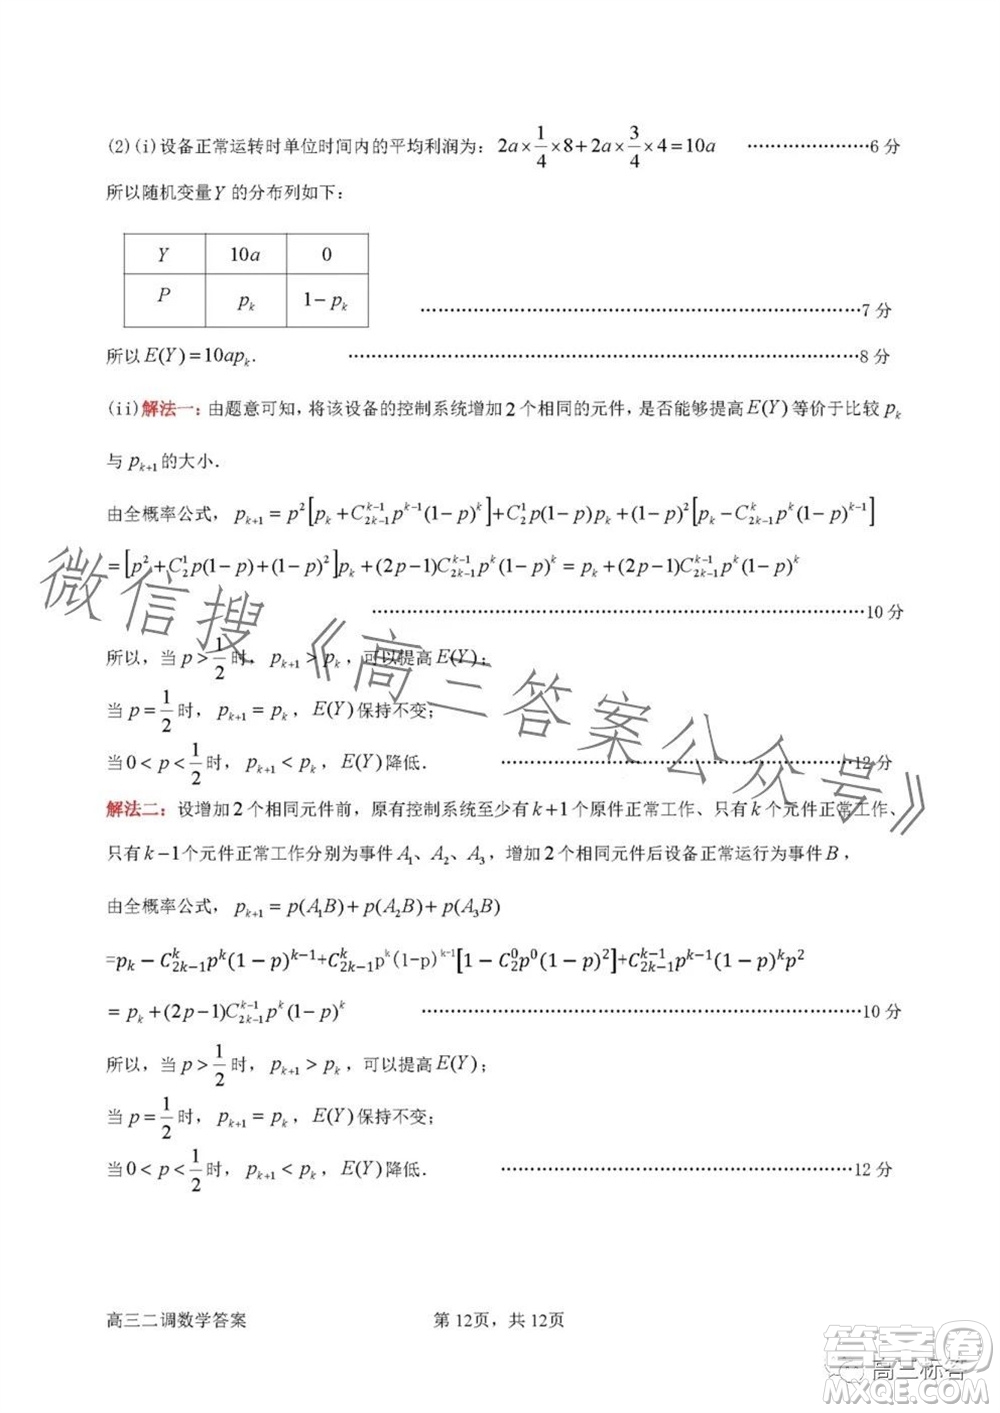 (2)(i)设备正常运转时单位时间内的平均利润为: 2a×1/4×8+2a×3/4×4=10a ⋯⋯⋯⋯⋯6 分
所以随机变量Y 的分布列如下:
Y 10a 0
P p_k 1−p_k
⋯⋯⋯⋯⋯7 分
所以E(Y)=10ap_k. ⋯⋯⋯⋯⋯8 分
(ii)解法一: 由题意可知, 将该设备的控制系统增加2个相同的元件, 是否能够提高E(Y)等价于比较p_k
与p_{k+1}的大小.
由全概率公式, p_{k+1}=p^2[p_k+C_{2k-1}^{k-1}p^{k-1}(1−p)^k]+C_2^1p(1−p)p_k+(1−p)^2[p_k−C_{2k-1}^kp^k(1−p)^{k-1}]
=[p^2+C_2^1p(1−p)+(1−p)^2]p_k+(2p−1)C_{2k-1}^{k-1}p^k(1−p)^k=p_k+(2p−1)C_{2k-1}^{k-1}p^k(1−p)^k
⋯⋯⋯⋯⋯10 分
所以, 当p>1/2时, p_{k+1}>p_k, 可以提高E(Y);
当p=1/2时, p_{k+1}=p_k, E(Y)保持不变;
当0<p<1/2时, p_{k+1}<p_k, E(Y)降低. ⋯⋯⋯⋯⋯12 分
解法二: 设增加2个相同元件前, 原有控制系统至少有k+1个原件正常工作、只有k个元件正常工作、
只有k−1个元件正常工作分别为事件A_1、A_2、A_3, 增加2个相同元件后设备正常运行为事件B,
由全概率公式, p_{k+1}=p(A_1B)+p(A_2B)+p(A_3B)
=p_k−C_{2k-1}^kp^k(1−p)^{k-1}+C_{2k-1}^kp^k(1-p)^{k-1}[1−C_2^0p^0(1−p)^2]+C_{2k-1}^{k-1}p^{k-1}(1−p)^kp^2
=p_k+(2p−1)C_{2k-1}^{k-1}p^k(1−p)^k ⋯⋯⋯⋯⋯10 分
所以, 当p>1/2时, p_{k+1}>p_k, 可以提高E(Y);
当p=1/2时, p_{k+1}=p_k, E(Y)保持不变;
当0<p<1/2时, p_{k+1}<p_k, E(Y)降低. ⋯⋯⋯⋯⋯12 分
微信搜《高三答案公众号》
高三二调数学答案 第 12页, 共 12页
高三标答
答案圈
MXQE.COM